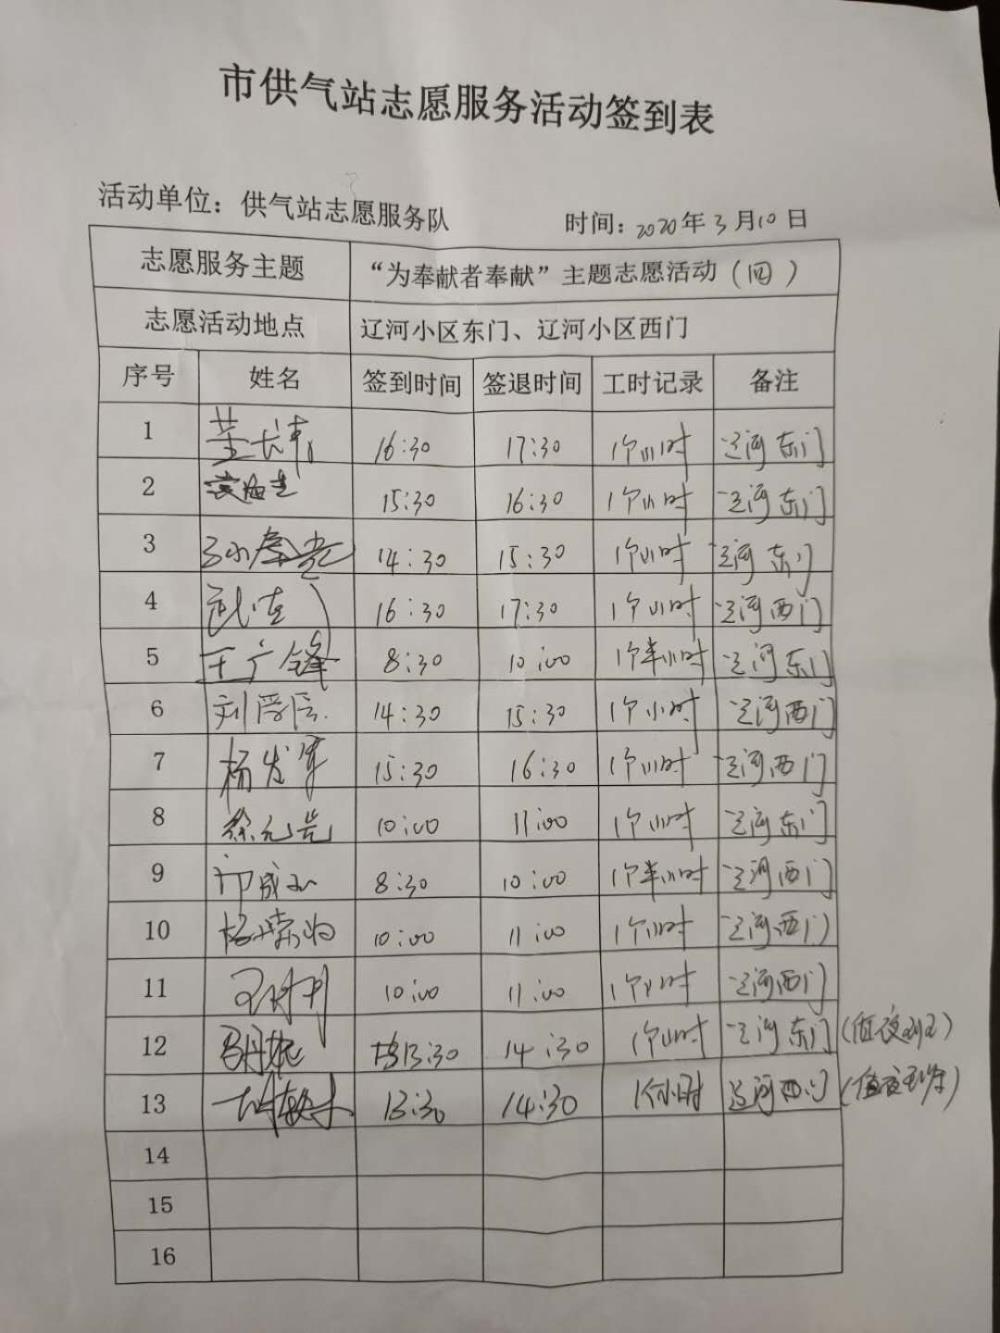 市供气站志愿服务活动签到表
活动单位：供气站志愿服务队 时间：2020年3月10日
志愿服务主题 “为奉献者奉献”主题志愿活动（四）
志愿活动地点 辽河小区东门、辽河小区西门
序号 姓名 签到时间 签退时间 工时记录 备注
1 16:30 17:30 1个小时 辽河东门
2 15:30 16:30 1个小时 辽河东门
3 14:30 15:30 1个小时 辽河东门
4 16:30 17:30 1个小时 辽河西门
5 王广锋 8:30 10:00 1个半小时 辽河东门
6 14:30 15:30 1个小时 辽河西门
7 杨发军 15:30 16:30 1个小时 辽河西门
8 徐元岂 10:00 11:00 1个小时 辽河东门
9 8:30 10:00 1个半小时 辽河西门
10 10:00 11:00 1个小时 辽河西门
11 10:00 11:00 1个小时 辽河西门
12 13:30 14:30 1个小时 辽河东门
13 13:30 14:30 1个小时 辽河西门
14
15
16